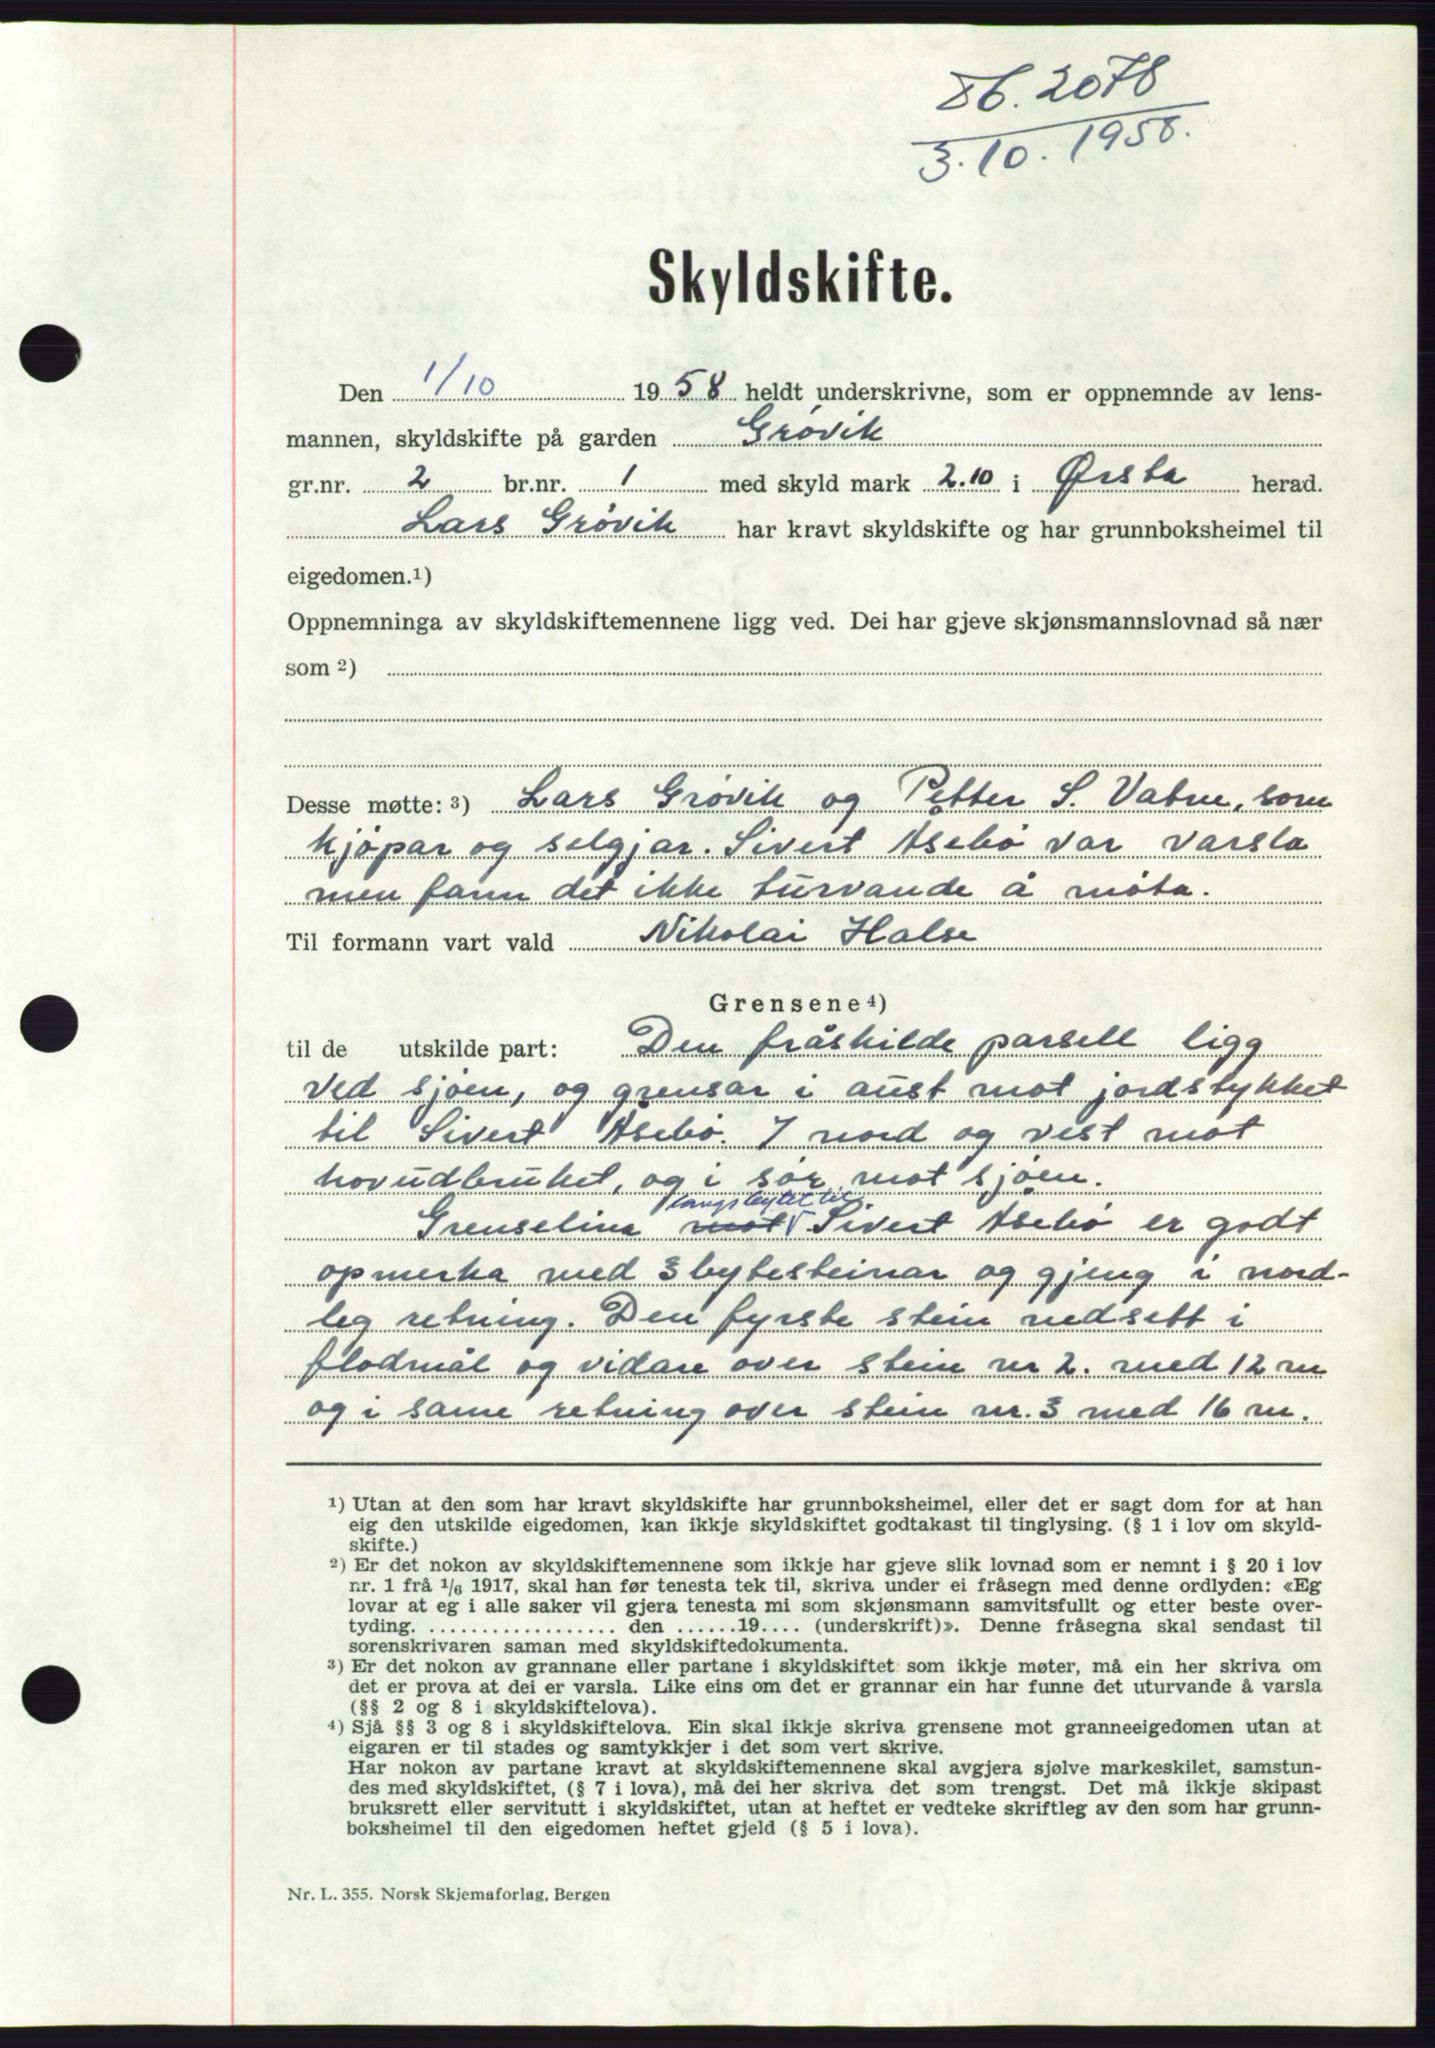 Db. 2078
3.10.1958.
Skyldskifte.
Den 1/10 1958 heldt underskrivne, som er oppnemnde av lens-
mannen, skyldskifte på garden Grøvik
gr.nr. 2 br.nr. 1 med skyld mark 2.10 i Ørsta herad.
Lars Grøvik har kravt skyldskifte og har grunnboksheimel til
eigedomen.1)
Oppnemninga av skyldskiftemennene ligg ved. Dei har gjeve skjønsmannslovnad så nær
som 2)
Desse møtte: 3) Lars Grøvik og Petter S. Vatne, som
kjøpar og selgjar. Sivert Åsebø var varsla
men fann det ikke turvande å møta.
Til formann vart vald Nikolai Halse
Grensene 4)
til de utskilde part: Den fråskilde parsell ligg
ved sjøen, og grensar i aust mot jordstykket
til Sivert Åsebø. I nord og vest mot
hovudbruket, og i sør mot sjøen.
langsbytet til
Grenselina mot Sivert Åsebø er godt
opmerka med 3 bytesteinar og gjeng i nord-
leg retning. Den fyrste stein nedsett i
flodmål og vidare over stein nr 2. med 12 m
og i same retning over stein nr. 3 med 16 m.
1) Utan at den som har kravt skyldskifte har grunnboksheimel, eller det er sagt dom for at han
eig den utskilde eigedomen, kan ikkje skyldskiftet godtakast til tinglysing. (§ 1 i lov om skyld-
skifte.)
2) Er det nokon av skyldskiftemennene som ikkje har gjeve slik lovnad som er nemnt i § 20 i lov
nr. 1 frå 1/6 1917, skal han før tenesta tek til, skriva under ei fråsegn med denne ordlyden: «Eg
lovar at eg i alle saker vil gjera tenesta mi som skjønsmann samvitsfullt og etter beste over-
tyding. .................. den ......19.... (underskrift)». Denne fråsegna skal sendast til
sorenskrivaren saman med skyldskiftedokumenta.
3) Er det nokon av grannane eller partane i skyldskiftet som ikkje møter, må ein her skriva om
det er prova at dei er varsla. Like eins om det er grannar ein har funne det uturvande å varsla
(§§ 2 og 8 i skyldskiftelova).
4) Sjå §§ 3 og 8 i skyldskiftelova. Ein skal ikkje skriva grensene mot granneeigedomen utan at
eigaren er til stades og samtykkjer i det som vert skrive.
Har nokon av partane kravt at skyldskiftemennene skal avgjera sjølve markeskilet, samstun-
des med skyldskiftet, (§ 7 i lova), må dei her skriva det som trengst. Det må ikkje skipast
bruksrett eller servitutt i skyldskiftet, utan at heftet er vedteke skriftleg av den som har grunn-
boksheimel til den eigedomen heftet gjeld (§ 5 i lova).
Nr. L. 355. Norsk Skjemaforlag, Bergen